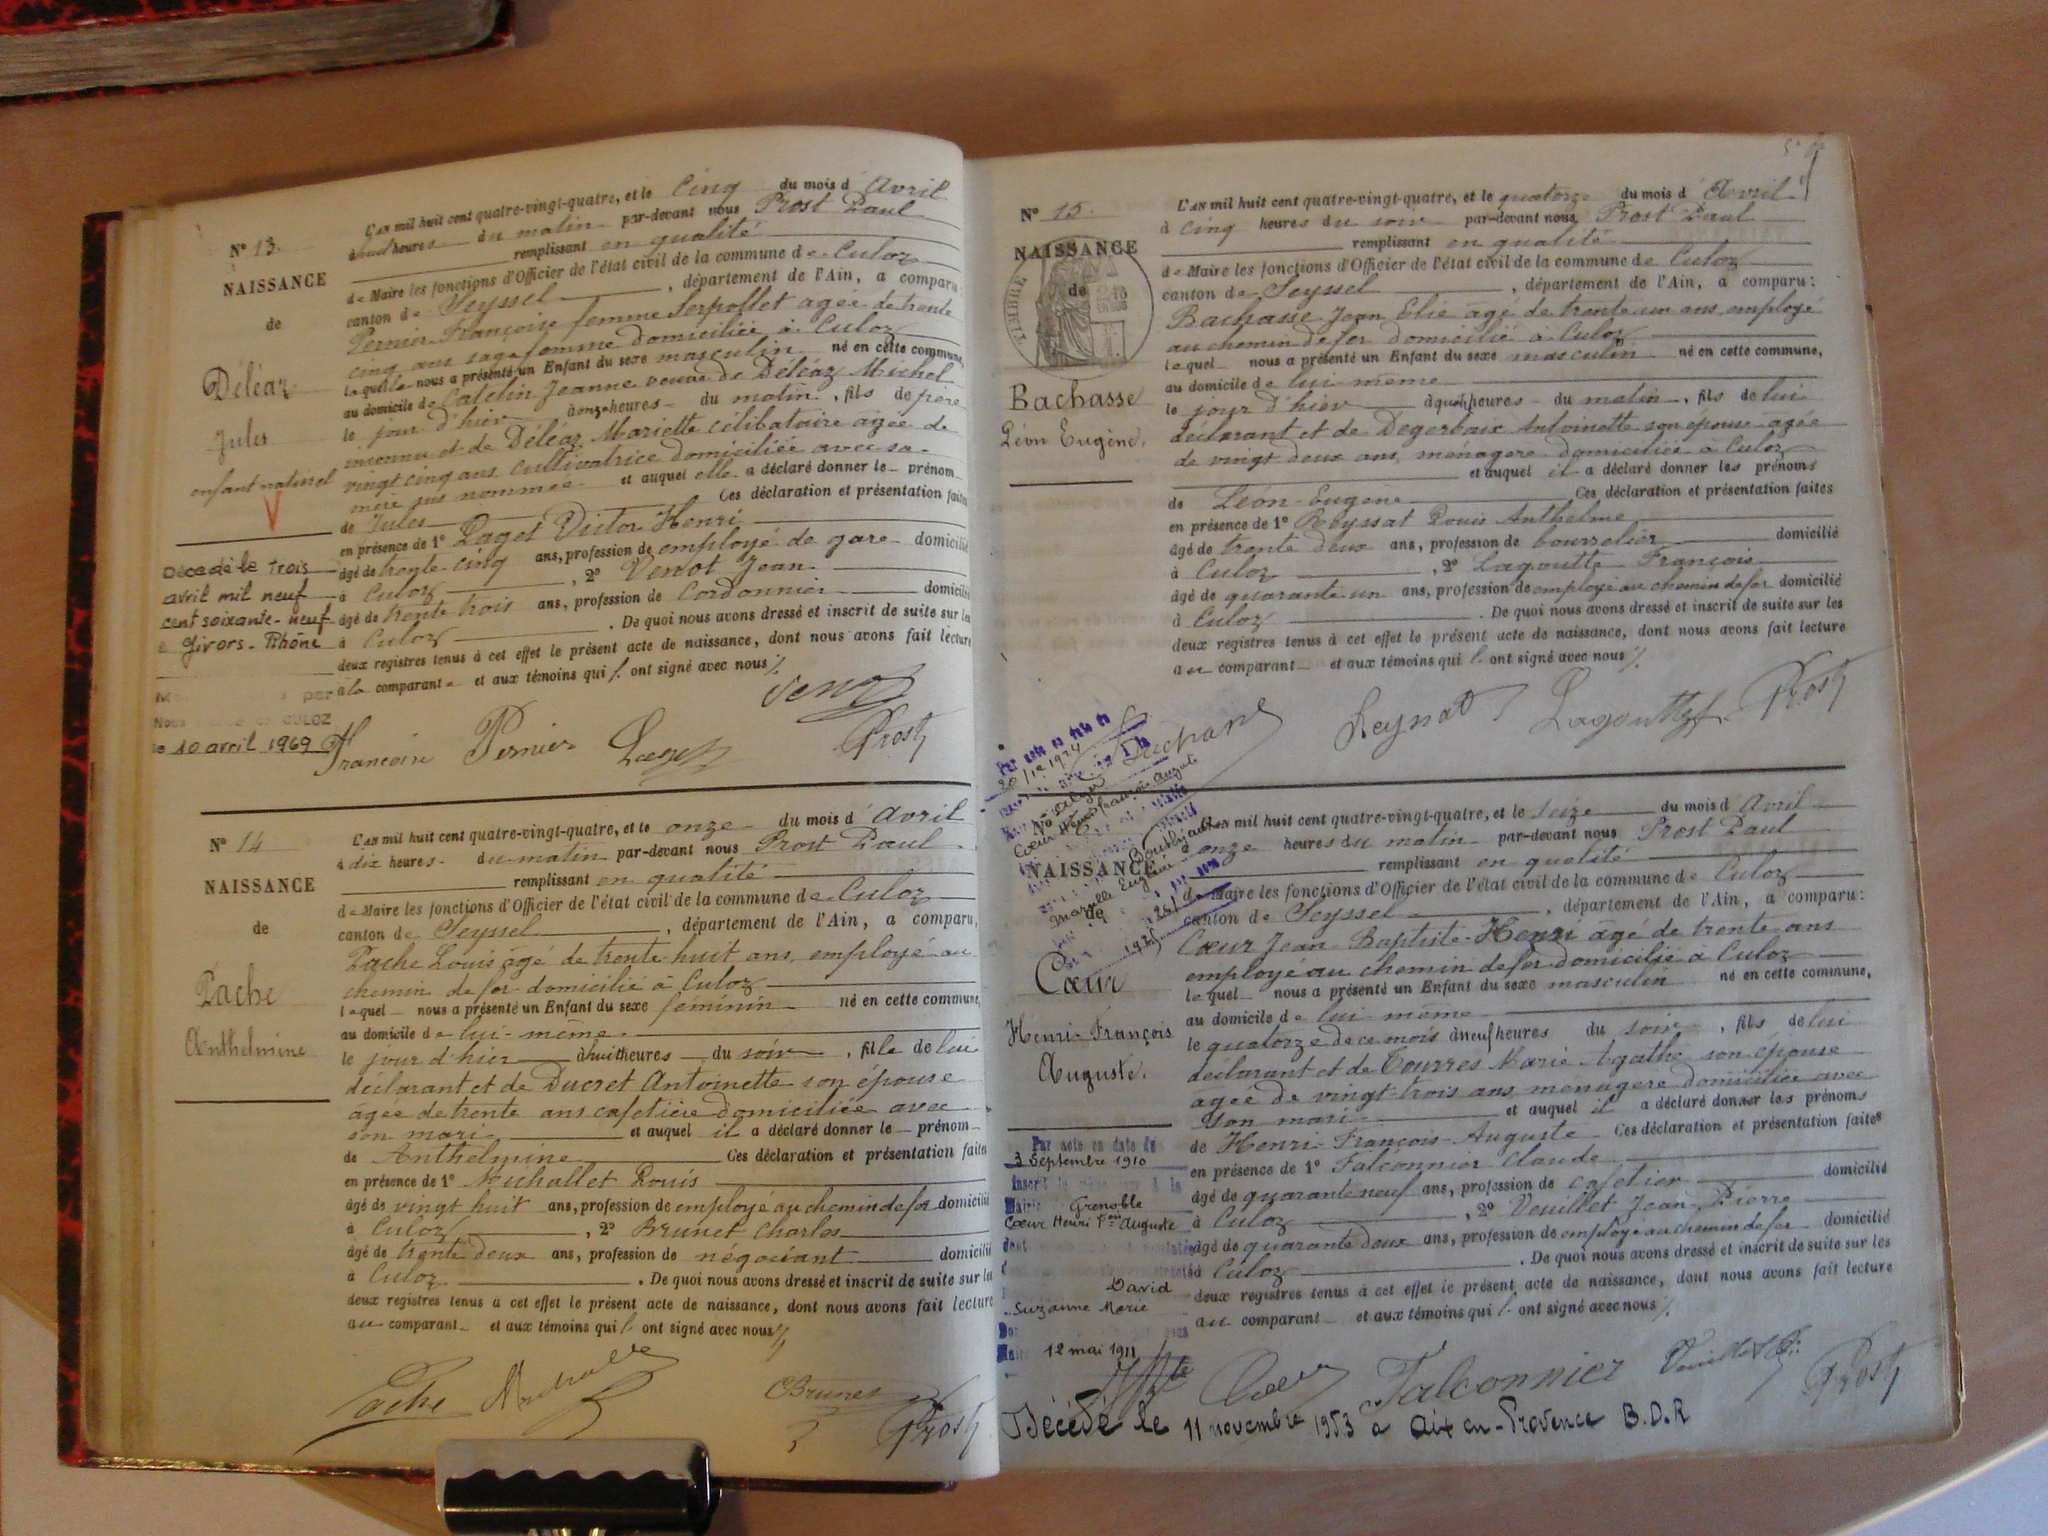 N° 13.
NAISSANCE
de
Déléaz
Jules
enfant naturel
Décédé le trois
avril mil neuf
cent soixante-neuf
à Givors-Rhône
CULOZ
le 10 avril 1969
L'AN mil huit cent quatre-vingt-quatre, et le Cinq du mois d'Avril
à huit heures du matin par-devant nous Prost Paul
remplissant en qualité
de Maire les fonctions d'Officier de l'état civil de la commune de Culoz
canton de Seyssel, département de l'Ain, a comparu
Pernier Françoise femme Serpollet agée de trente
cinq ans sage femme domiciliée à Culoz
laquelle nous a présenté un Enfant du sexe masculin né en cette commune,
au domicile de Catelin Jeanne veuve de Déléaz Michel
le jour d'hier à onze heures du matin, fils de père
inconnu et de Déléaz Mariette célibataire agée de
vingt cinq ans cultivatrice domiciliée avec sa
mère sus nommée et auquel elle a déclaré donner le prénom
de Jules Ces déclaration et présentation faites
en présence de 1° Paget Victor Henri
âgé de trente cinq ans, profession de employé de gare domicilié
à Culoz, 2° Venot Jean
âgé de trente trois ans, profession de Cordonnier domicilié
à Culoz. De quoi nous avons dressé et inscrit de suite sur les
deux registres tenus à cet effet le présent acte de naissance, dont nous avons fait lecture
à la comparante et aux témoins qui ont signé avec nous
Venot
Françoise Pernier Paget Prost
N° 14
NAISSANCE
de
Pache
Anthelmine
L'AN mil huit cent quatre-vingt-quatre, et le onze du mois d'Avril
à dix heures du matin par-devant nous Prost Paul
remplissant en qualité
de Maire les fonctions d'Officier de l'état civil de la commune de Culoz
canton de Seyssel, département de l'Ain, a comparu,
Pache Louis âgé de trente huit ans, employé au
chemin de fer domicilié à Culoz
lequel nous a présenté un Enfant du sexe féminin né en cette commune,
au domicile de lui-même
le jour d'hier à huit heures du soir, fille de lui
déclarant et de Ducret Antoinette son épouse
agée de trente ans cafetière domiciliée avec
son mari et auquel il a déclaré donner le prénom
de Anthelmine Ces déclaration et présentation faites
en présence de 1° Michallet Louis
âgé de vingt huit ans, profession de employé au chemin de fer domicilié
à Culoz, 2° Brunet Charles
âgé de trente deux ans, profession de négociant domicilié
à Culoz. De quoi nous avons dressé et inscrit de suite sur les
deux registres tenus à cet effet le présent acte de naissance, dont nous avons fait lecture
au comparant et aux témoins qui ont signé avec nous
Pache Brunet Prost
N° 15.
NAISSANCE
de
TIMBRE
Bachasse
Léon Eugène.
L'AN mil huit cent quatre-vingt-quatre, et le quatorze du mois d'Avril
à cinq heures du soir par-devant nous Prost Paul
remplissant en qualité
de Maire les fonctions d'Officier de l'état civil de la commune de Culoz
canton de Seyssel, département de l'Ain, a comparu:
Bachasse Jean Elie agé de trente un ans employé
au chemin de fer domicilié à Culoz
lequel nous a présenté un Enfant du sexe masculin né en cette commune,
au domicile de lui-même
le jour d'hier à quatre heures du matin, fils de lui
déclarant et de Degerbaix Antoinette son épouse agée
de vingt deux ans, ménagère domiciliée à Culoz
et auquel il a déclaré donner les prénoms
de Léon-Eugène Ces déclaration et présentation faites
en présence de 1° Louis Anthelme
âgé de trente deux ans, profession de bourrelier domicilié
à Culoz, 2° Lagoutte François
âgé de quarante un ans, profession de employé au chemin de fer domicilié
à Culoz. De quoi nous avons dressé et inscrit de suite sur les
deux registres tenus à cet effet le présent acte de naissance, dont nous avons fait lecture
au comparant et aux témoins qui ont signé avec nous
Lagoutte Prost
Par acte en date du
20/12 1924
Alger
Cœur Henri François Auguste
Marcelle Eugénie
1925
N°
NAISSANCE
de
Cœur
Henri-François
Auguste.
Par acte en date du
3 Septembre 1910
Grenoble
Cœur Henri Fçois Auguste
David
Suzanne Marie
12 mai 1911
L'AN mil huit cent quatre-vingt-quatre, et le seize du mois d'Avril
à onze heures du matin par-devant nous Prost Paul
remplissant en qualité
de Maire les fonctions d'Officier de l'état civil de la commune de Culoz
canton de Seyssel, département de l'Ain, a comparu:
Cœur Jean Baptiste-Henri agé de trente ans
employé au chemin de fer domicilié à Culoz
lequel nous a présenté un Enfant du sexe masculin né en cette commune,
au domicile de lui-même
le quatorze de ce mois à neuf heures du soir, fils de lui
déclarant et de Tourres Marie Agathe son épouse
agée de vingt-trois ans ménagère domiciliée avec
son mari et auquel il a déclaré donner les prénoms
de Henri-François-Auguste Ces déclaration et présentation faites
en présence de 1° Falconnier Claude
âgé de quarante neuf ans, profession de cafetier domicilié
à Culoz, 2° Veuillet Jean Pierre
âgé de quarante deux ans, profession de employé au chemin de fer domicilié
à Culoz. De quoi nous avons dressé et inscrit de suite sur les
deux registres tenus à cet effet le présent acte de naissance, dont nous avons fait lecture
au comparant et aux témoins qui ont signé avec nous
Cœur Falconnier Prost
Décédé le 11 novembre 1953 à Aix en-Provence B.D.R